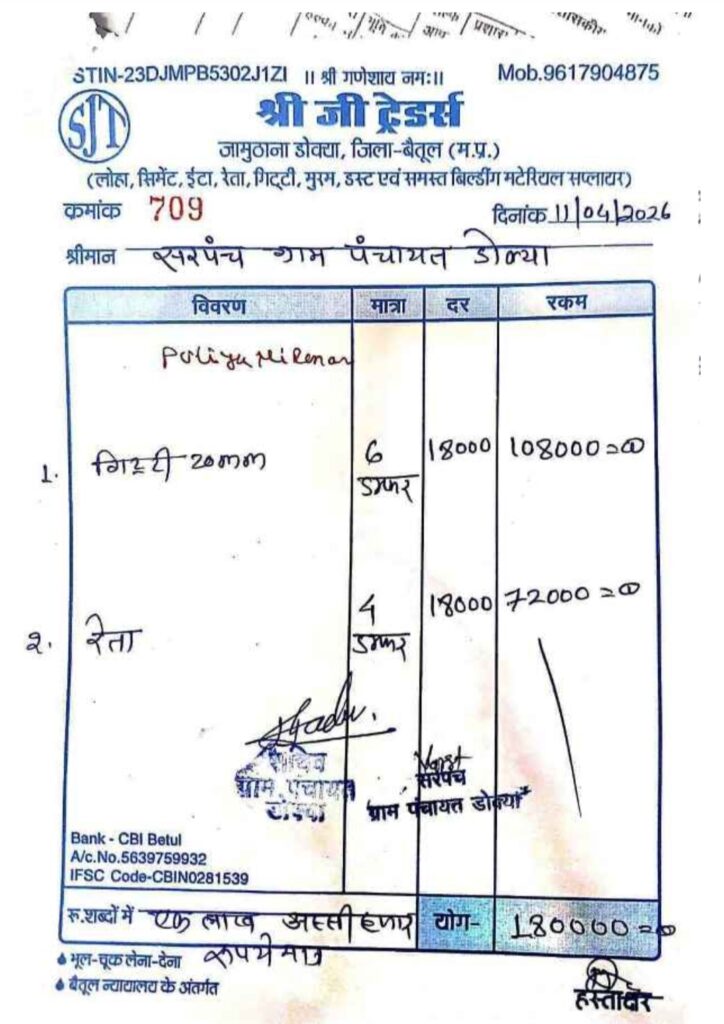 STIN-23DJMPB5302J1ZI ॥ श्री गणेशाय नमः॥ Mob.9617904875
SJT
श्री जी ट्रेडर्स
जामुठाना डोक्या, जिला-बैतूल (म.प्र.)
(लोहा, सिमेंट, ईटा, रेता, गिट्टी, मुरम, डस्ट एवं समस्त बिल्डींग मटेरियल सप्लायर)
क्रमांक 709 दिनांक 11/04/2026
श्रीमान सरपंच ग्राम पंचायत डोक्या
विवरण मात्रा दर रकम
1. गिट्टी 20mm 6 डम्फर 18000 108000=00
2. रेता 4 डम्फर 18000 72000=00
सचिव
ग्राम पंचायत
डोक्या
सरपंच
ग्राम पंचायत डोक्या
Bank - CBI Betul
A/c.No.5639759932
IFSC Code-CBIN0281539
रू.शब्दों में एक लाख अस्सी हजार योग- 180000=00
रूपये मात्र
भूल-चूक लेना-देना
बैतूल न्यायालय के अंतर्गत
हस्ताक्षर